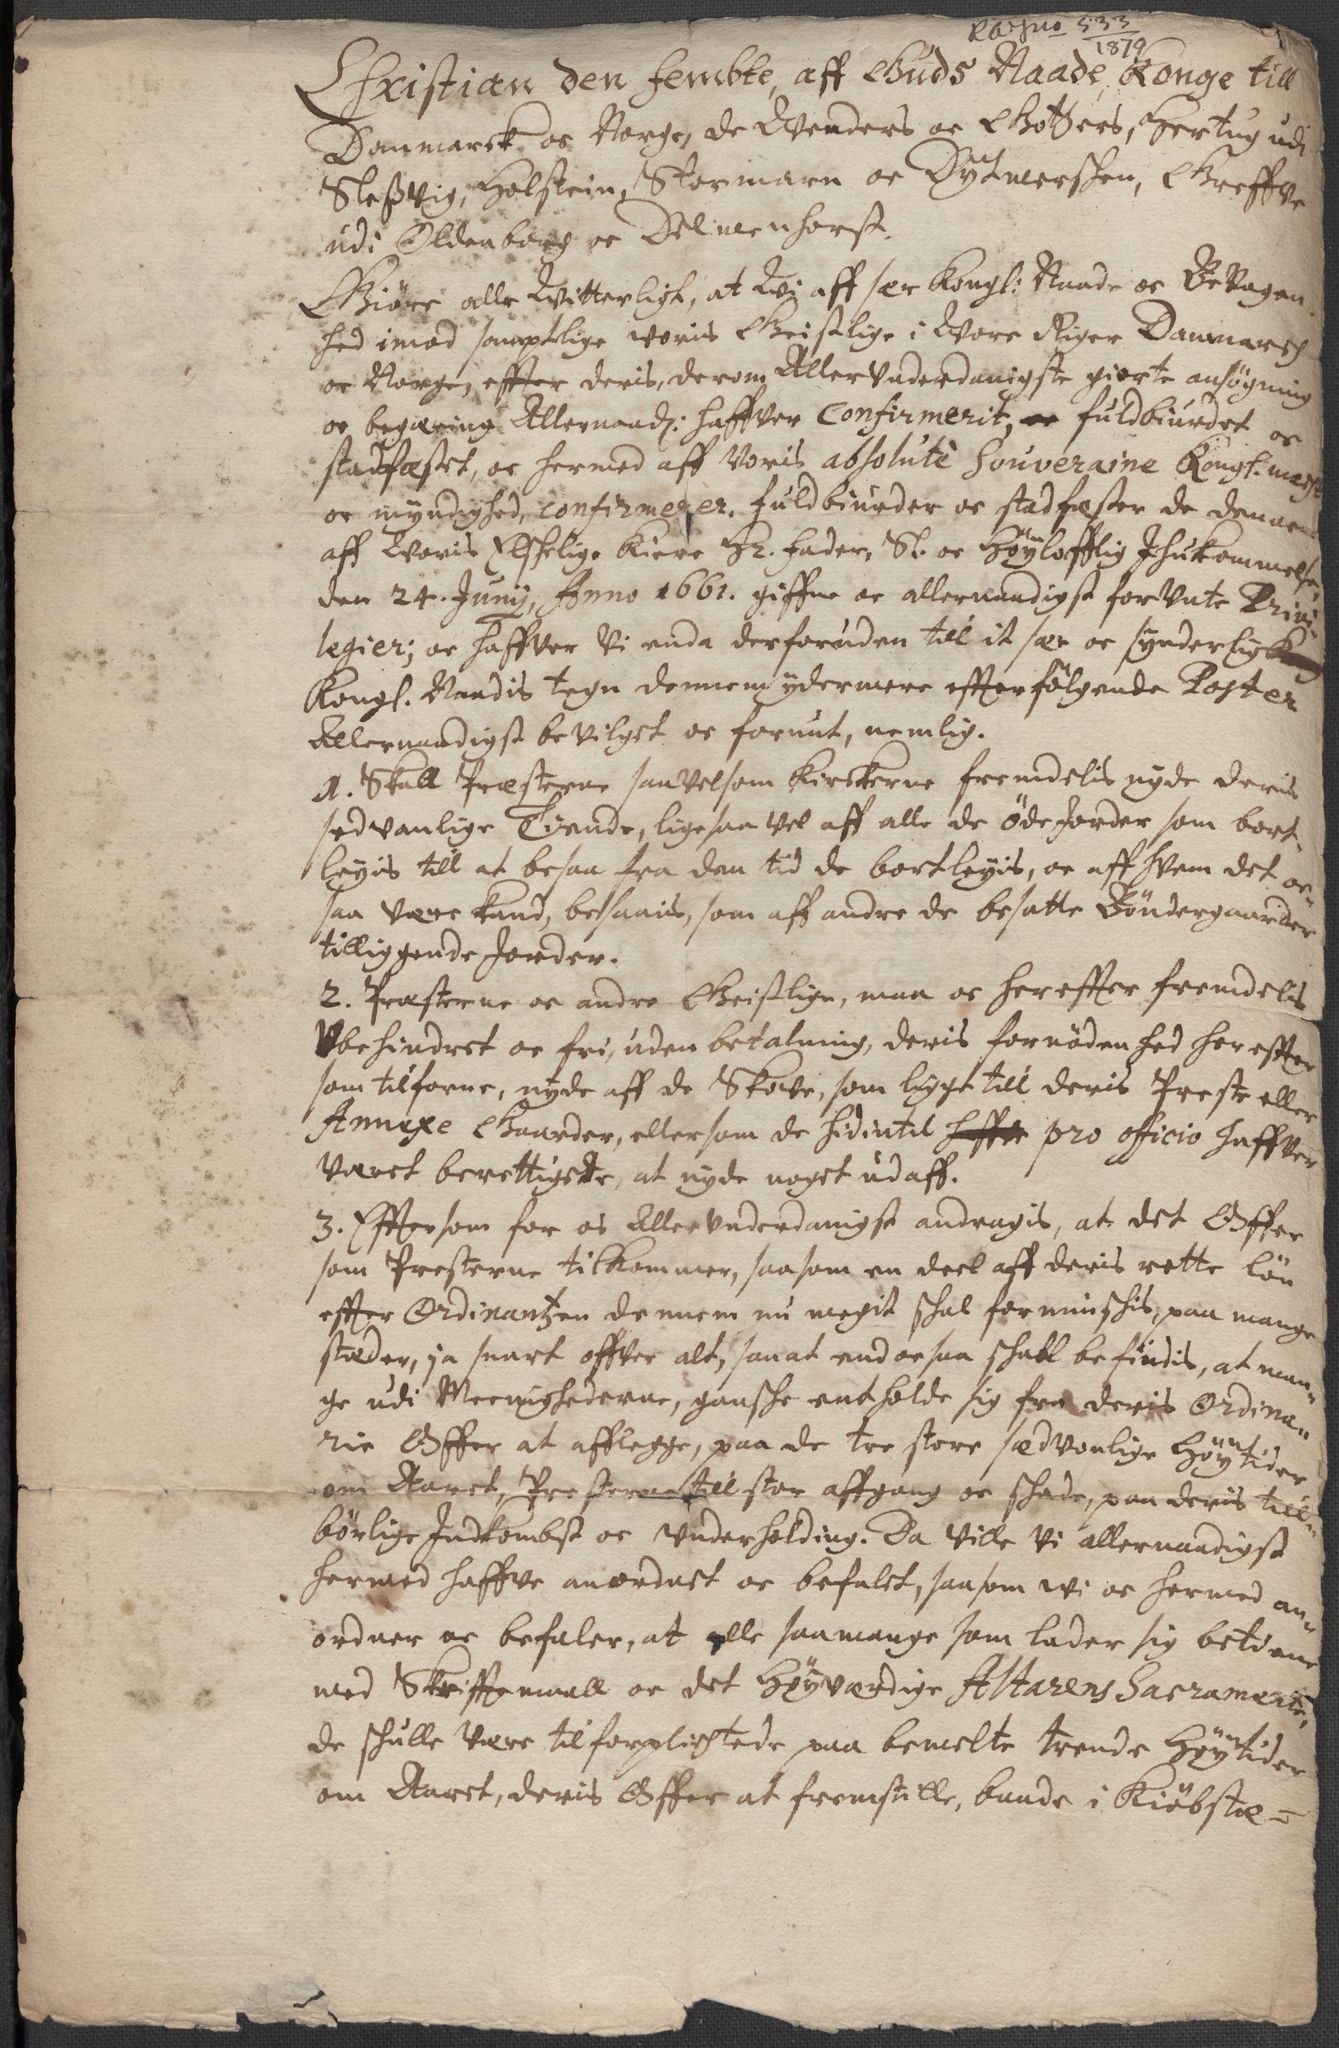 533
1879
Christian den fembte, aff Guds Naade, Konge till
Danmarck oc Norge, de Wenders oc Gothers, Hertug udi
Sleßvig, Holstein, Stormarn oc Dytmersken, Greffve
udi Oldenborg oc Delmenhorst.
Giøre alle Witterligt, at Wi aff sær Kongl: Naade oc Bevagen
hed imod samptlige voris Geistlige i Wore Riger Danmarch
oc Norge, effter deris, derom Allerunderdanigste giorte ansøgning
oc begæring Allernaad: haffver Confirmerit, oc fuldbiurdet oc
stadfæstet, oc hermed aff Voris absolute Souveraine Kongl. magt
oc myndighed, confirmerer, fuldbiurder oc stadfæster de dennem
aff Woris Elskelige Kiere Hr. Fader, Sl. oc Høylofflig Ihukommelse,
den 24. Junij, Anno 1661. giffne oc allernaadigst forunte Privi-
legier; oc haffver Vi enda derforuden till it sær oc synderlig
Kongl. Naadis tegn dennem ydermere effterfølgende Poster
Allernaadigst bevilget oc forunt, nemlig.
1. Skall Præsterne saavelsom Kirckerne fremdelis nyde deris
sedvanlige Tiende, ligesaa vel aff alle de øde Jorder som bort-
leyis till at besaa fra den tid de bortleyis, oc aff hvem det oc
saa være kand, besaais, som aff andre de besatte Bøndergaarder
tilliggende Jorder.
2. Præsterne oc andre Geistlige, maa oc hereffter fremdelis
Ubehindret oc fri, uden betalning, deris fornødenhed hereffter
som tilforne, nyde aff de Skove, som ligge till deris Preste eller
Annexe Gaarder, eller som de hidintil pro officio haffver
været berettigede, at nyde noget udaff.
3. Efftersom for os Allerunderdanigst andragis, at det Offer
som Presterne tilkommer, saasom en deel aff deris rette løn
effter Ordinantzen dennem nu megit skal forminskis, paa mange
stæder, ja snart offver alt, saa at end ocsaa skall befindis, at man-
ge udi Meenighederne, ganske entholde sig fra deris Ordina-
rie Offer at afflegge, paa de tre store sædvonlige Høytider
om Aaret, Presterne till stor affgang oc skade, paa deris till-
børlige Indkombst oc Underholding. Da ville Vi allernaadigst
hermed haffve anordnet oc befalet, saasom wi oc hermed an-
ordner oc befaler, at alle saamange som lader sig betiene
med Skrifftemaall oc det Høyværdige Altarens Sacramente,
de skulle være tilforplichtede paa bemelte trende Høytider
om Aaret, deris Offer at fremstille, baade i Kiøbstæ-